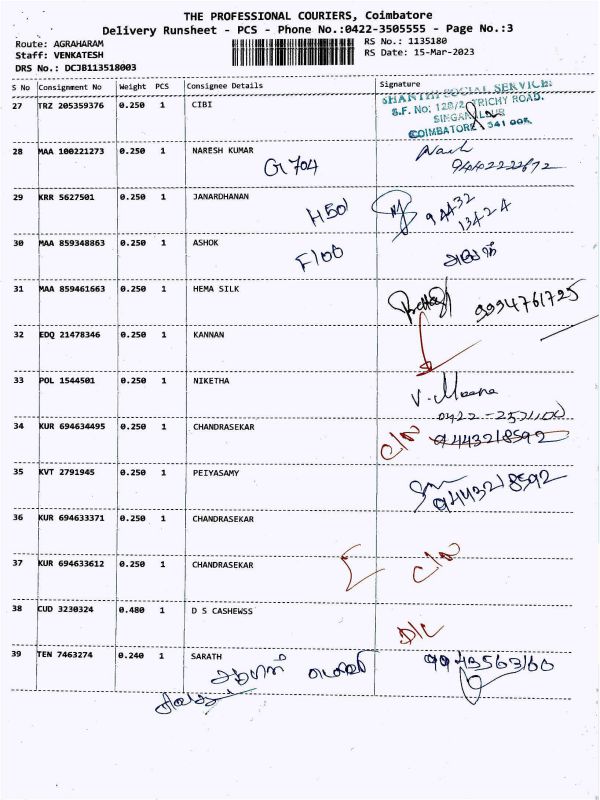 THE PROFESSIONAL COURIERS, Coimbatore
Delivery Runsheet - PCS - Phone No.:0422-3505555 - Page No.:3
Route: AGRAHARAM
Staff: VENKATESH
DRS No.: DCJB113518003
RS No.: 1135180
RS Date: 15-Mar-2023
S No Consignment No Weight PCS Consignee Details Signature
27 TRZ 205359376 0.250 1 CIBI
SHANTHI SOCIAL SERVICE
S.F. No: 128/2, TRICHY ROAD.
SINGANALLUR
COIMBATORE 641 005
28 MAA 100221273 0.250 1 NARESH KUMAR
G704
29 KRR 5627501 0.250 1 JANARDHANAN
H501
94432
13424
30 MAA 859348863 0.250 1 ASHOK
F100
31 MAA 859461663 0.250 1 HEMA SILK
9994761725
32 EDQ 21478346 0.250 1 KANNAN
33 POL 1544501 0.250 1 NIKETHA
V. Meena
34 KUR 694634495 0.250 1 CHANDRASEKAR
C/N 9443218592
35 KVT 2791945 0.250 1 PEIYASAMY
9443218592
36 KUR 694633371 0.250 1 CHANDRASEKAR
37 KUR 694633612 0.250 1 CHANDRASEKAR
C/N
38 CUD 3230324 0.480 1 D S CASHEWSS
D/L
39 TEN 7463274 0.240 1 SARATH
9943563160